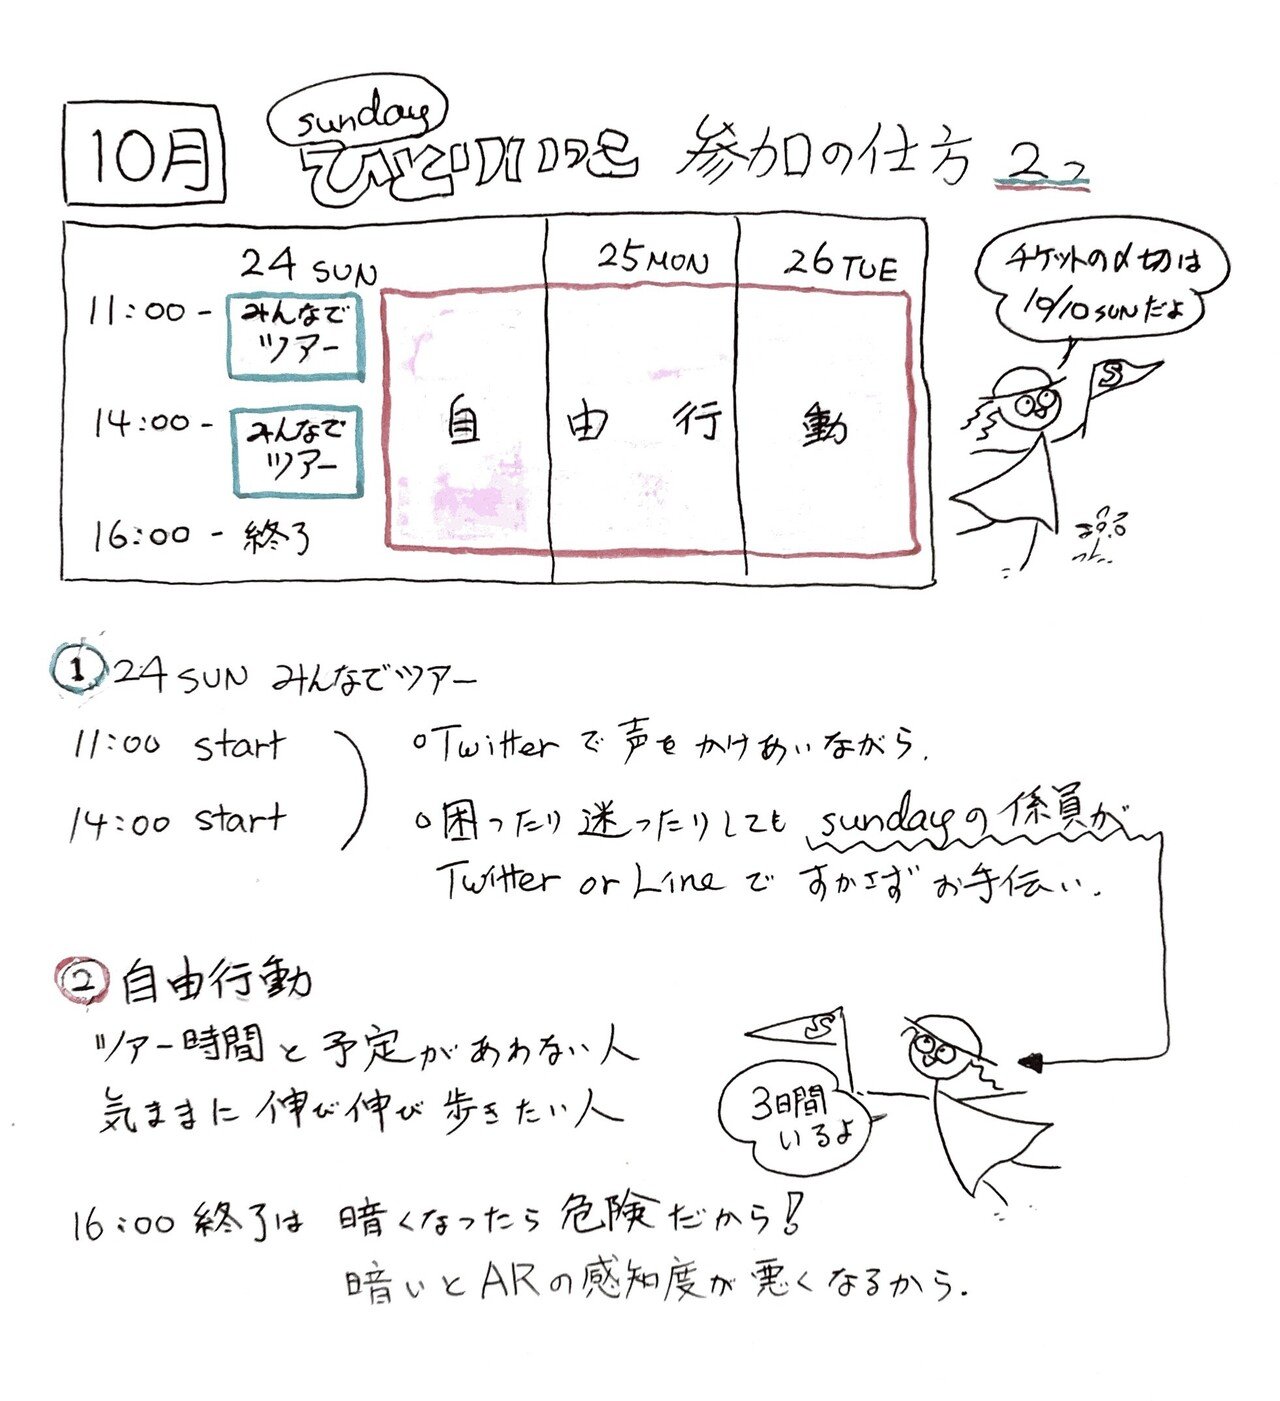 10月
sunday
ひとりいっき 参加の仕方 2つ
24 SUN 25 MON 26 TUE
11:00 - みんなで
ツアー
14:00 - みんなで
ツアー
自由行動
16:00 - 終了
チケットの〆切は
10/10 SUNだよ
S
① 24 SUN みんなでツアー
11:00 start
14:00 start
○Twitterで声をかけあいながら.
○困ったり迷ったりしても sundayの係員が
Twitter or Lineで すかさずお手伝い.
② 自由行動
ツアー時間と予定があわない人
気ままに伸び伸び歩きたい人
S
3日間
いるよ
16:00 終了は 暗くなったら危険だから!
暗いとARの感知度が悪くなるから.